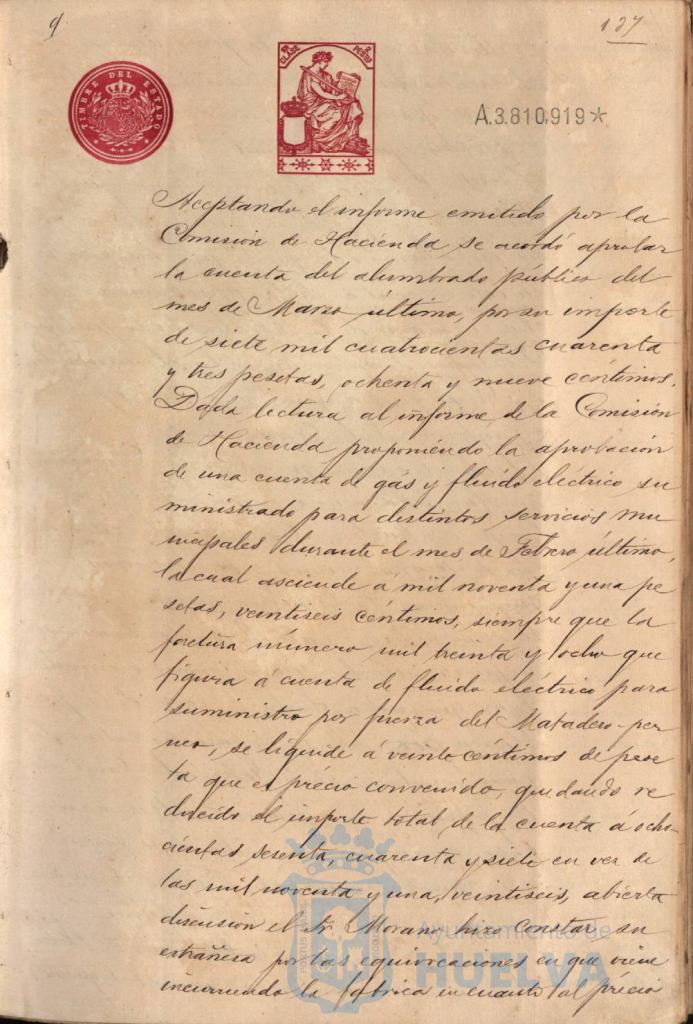 9
127
TIMBRE DEL ESTADO
CLASE
PESETAS
A.3.810,919*
Aceptando el informe emitido por la
Comisión de Hacienda se acordó aprobar
la cuenta del alumbrado público del
mes de Marzo último, por su importe
de siete mil cuatrocientas cuarenta
y tres pesetas, ochenta y nueve céntimos.
Dada lectura al informe de la Comisión
de Hacienda proponiendo la aprobación
de una cuenta de gás y fluido eléctrico su
ministrado para distintos servicios mu
nicipales durante el mes de Febrero último,
la cual asciende á mil noventa y una pe
setas, veintiseis céntimos, siempre que la
factura número mil treinta y ocho que
figura á cuenta de fluido eléctrico para
suministro por fuerza del Matadero-per
neo, se liquide á veinte céntimos de pese
ta que es précio convenido, quedando re
ducido el importe total de la cuenta á ocho
cientas sesenta, cuarenta y siete en vez de
las mil noventa y una, veintiseis, abierta
discusión el Sr. Morano hizo constar su
extrañeza por las equivocaciones en que viene
incurriendo la fábrica en cuanto al précio
Ayuntamiento de
HUELVA